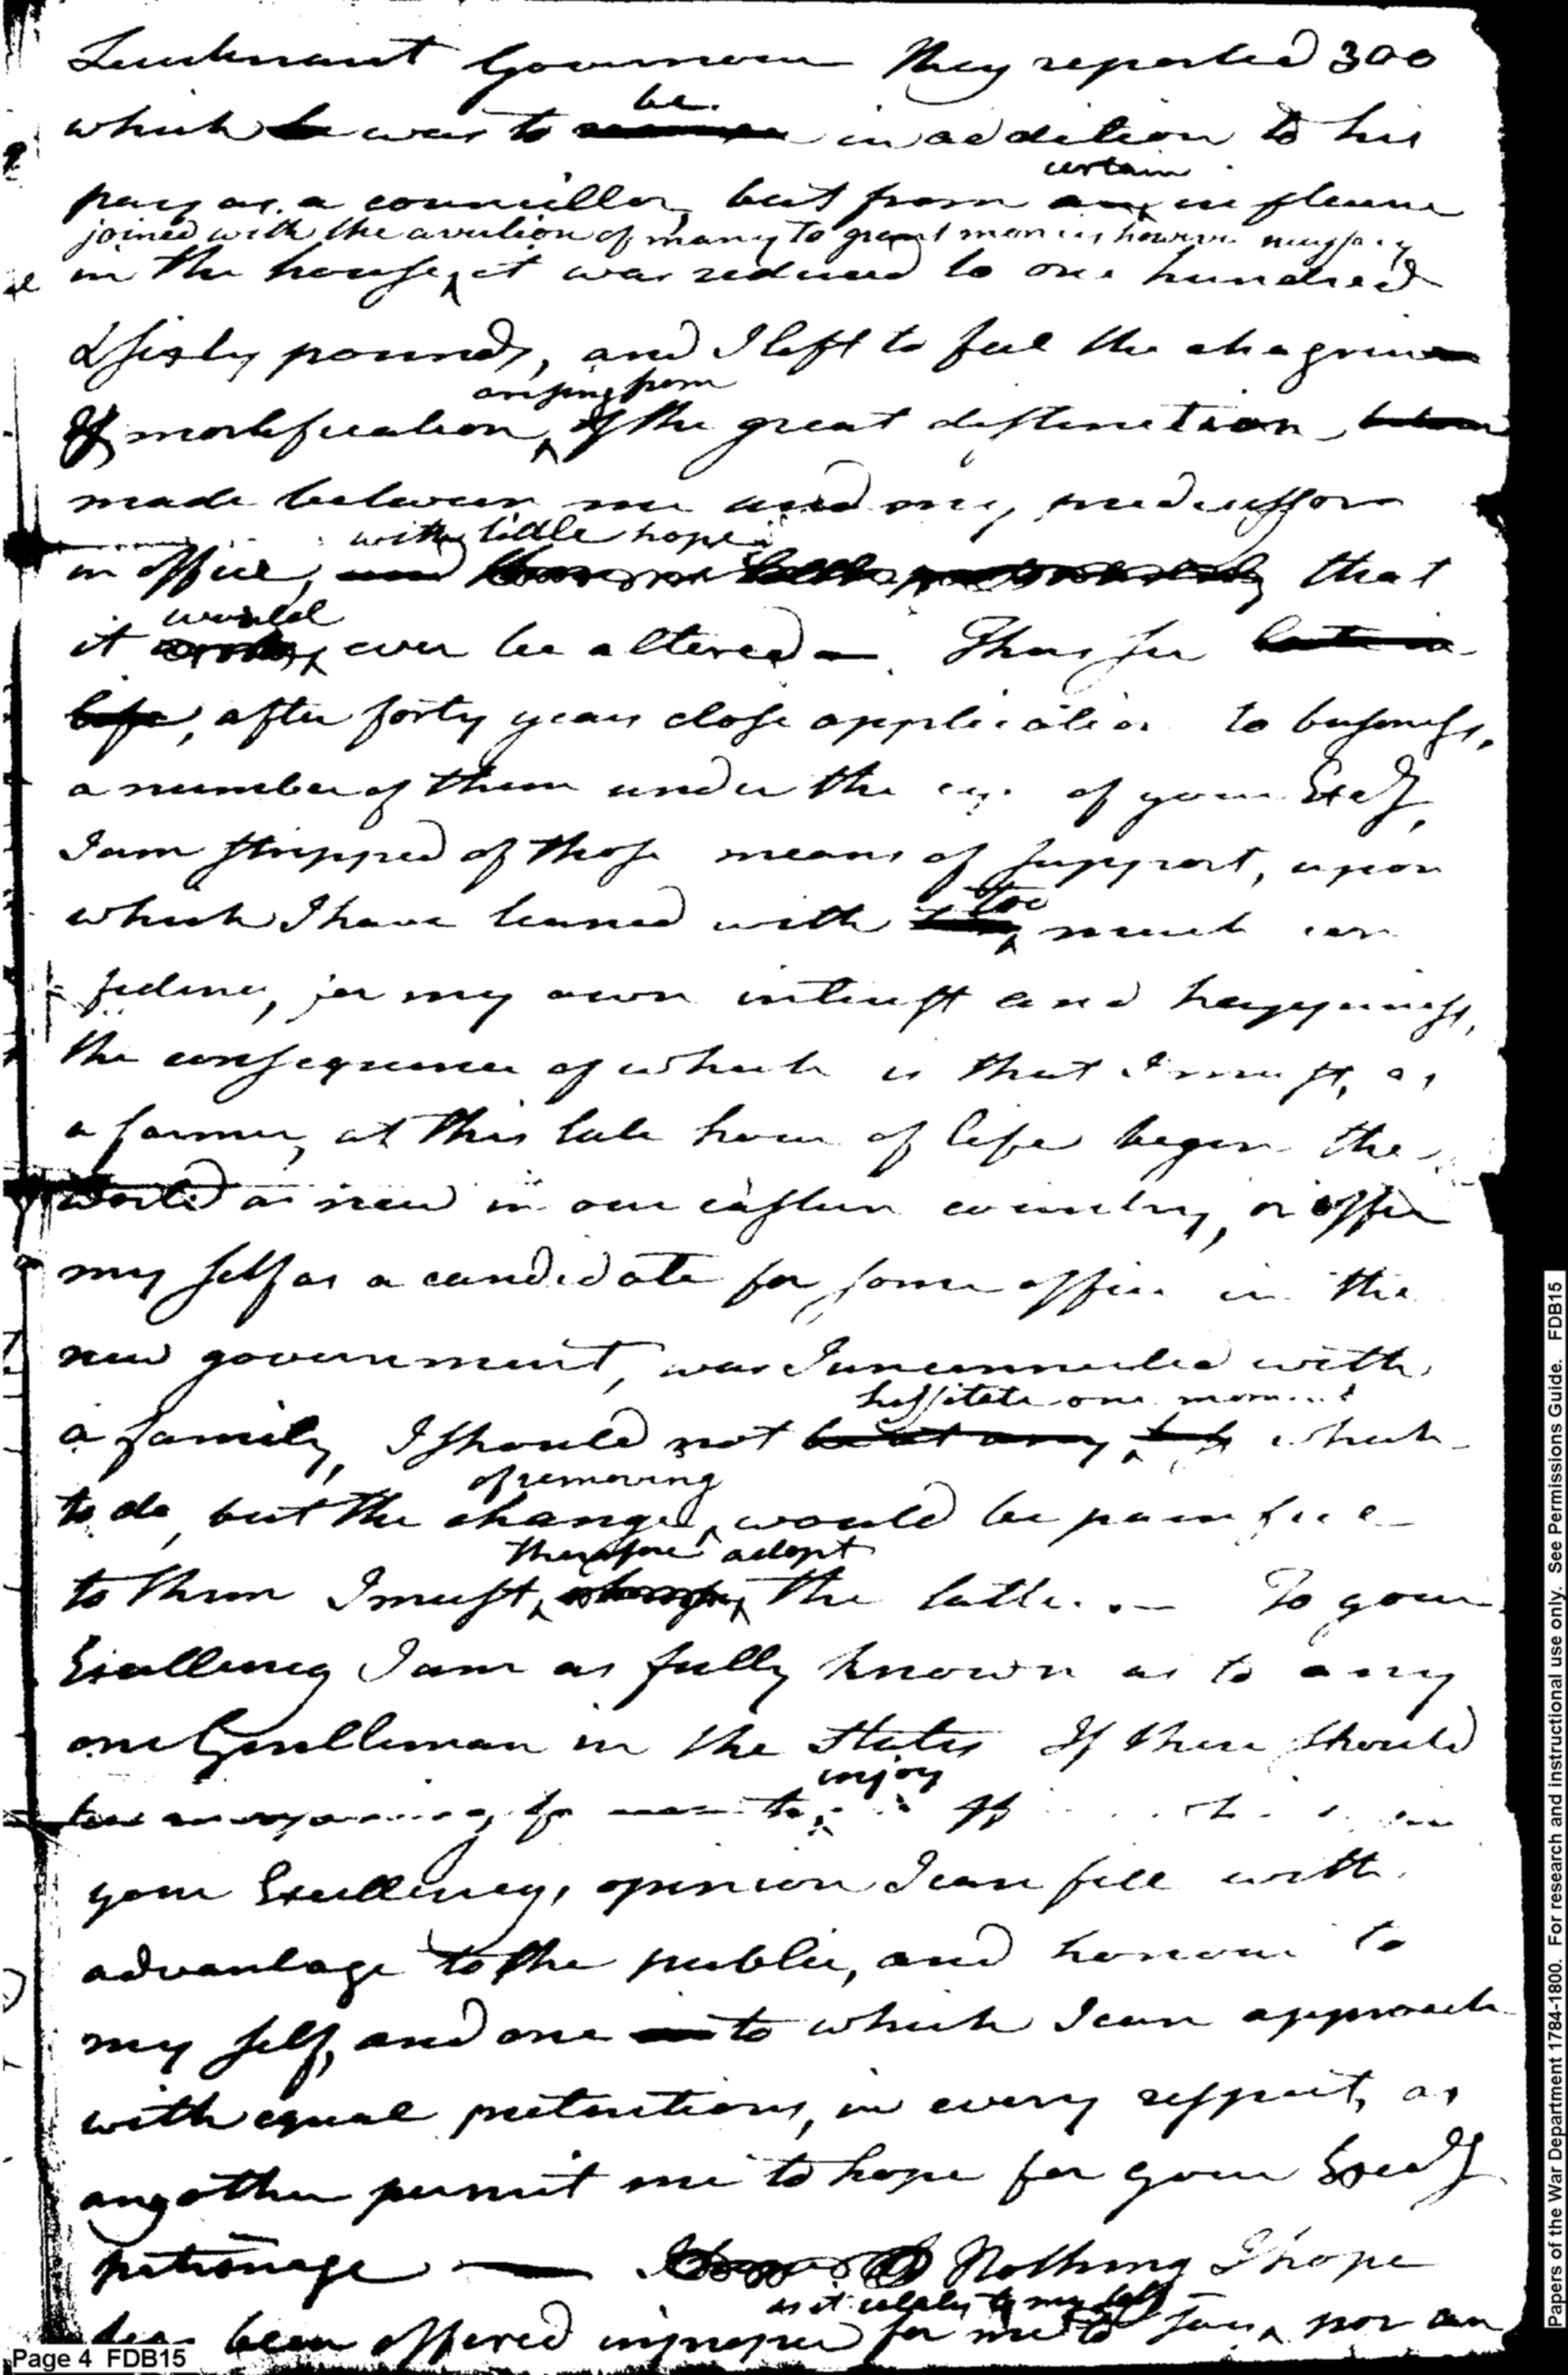 Lieutenant Governour They reported 300
be
which was to in addition to his
certain
pay as a councillor, but from influence
joined with the avertion of many to grant monies however necessary
in the house, it was reduced to one hundred
& sixty pounds, and I left to feel the chagrine
arising from
& mortification, the great destinction
made between me and my predecessor
with little hope
in office, that
would
it ever be altered. Thus far
life, after forty years close application to business,
a number of them under the eye of your Excy,
I am stripped of those means of support, upon
too
which I have leaned with much con
fidence, for my own interest and happiness,
the consequence of which is that I must, as
a farmer, at this late hour of life begin the
world a new in our eastern country, or offer
my self as a candidate for some office in the
new government, was I unconnected with
hessitate one moment
a family, I should not which
of removing
to do, but the change, would be painful
therefore adopt
to them I must, the latter. — To your
Excellency I am as fully known as to any
one Gentleman in the States If there should
injoy
be an opening for me to
your Excellencys opinion I can fill with
advantage to the public, and honour to
my self, and one to which I can approach
with equal pretentions, in every respect, as
any other permit me to hope for your Excys
patronage — Nothing I hope
as it relates to my self
has been offered improper for me to say, nor an
Page 4 FDB15
Papers of the War Department 1784-1800. For research and instructional use only. See Permissions Guide. FDB15